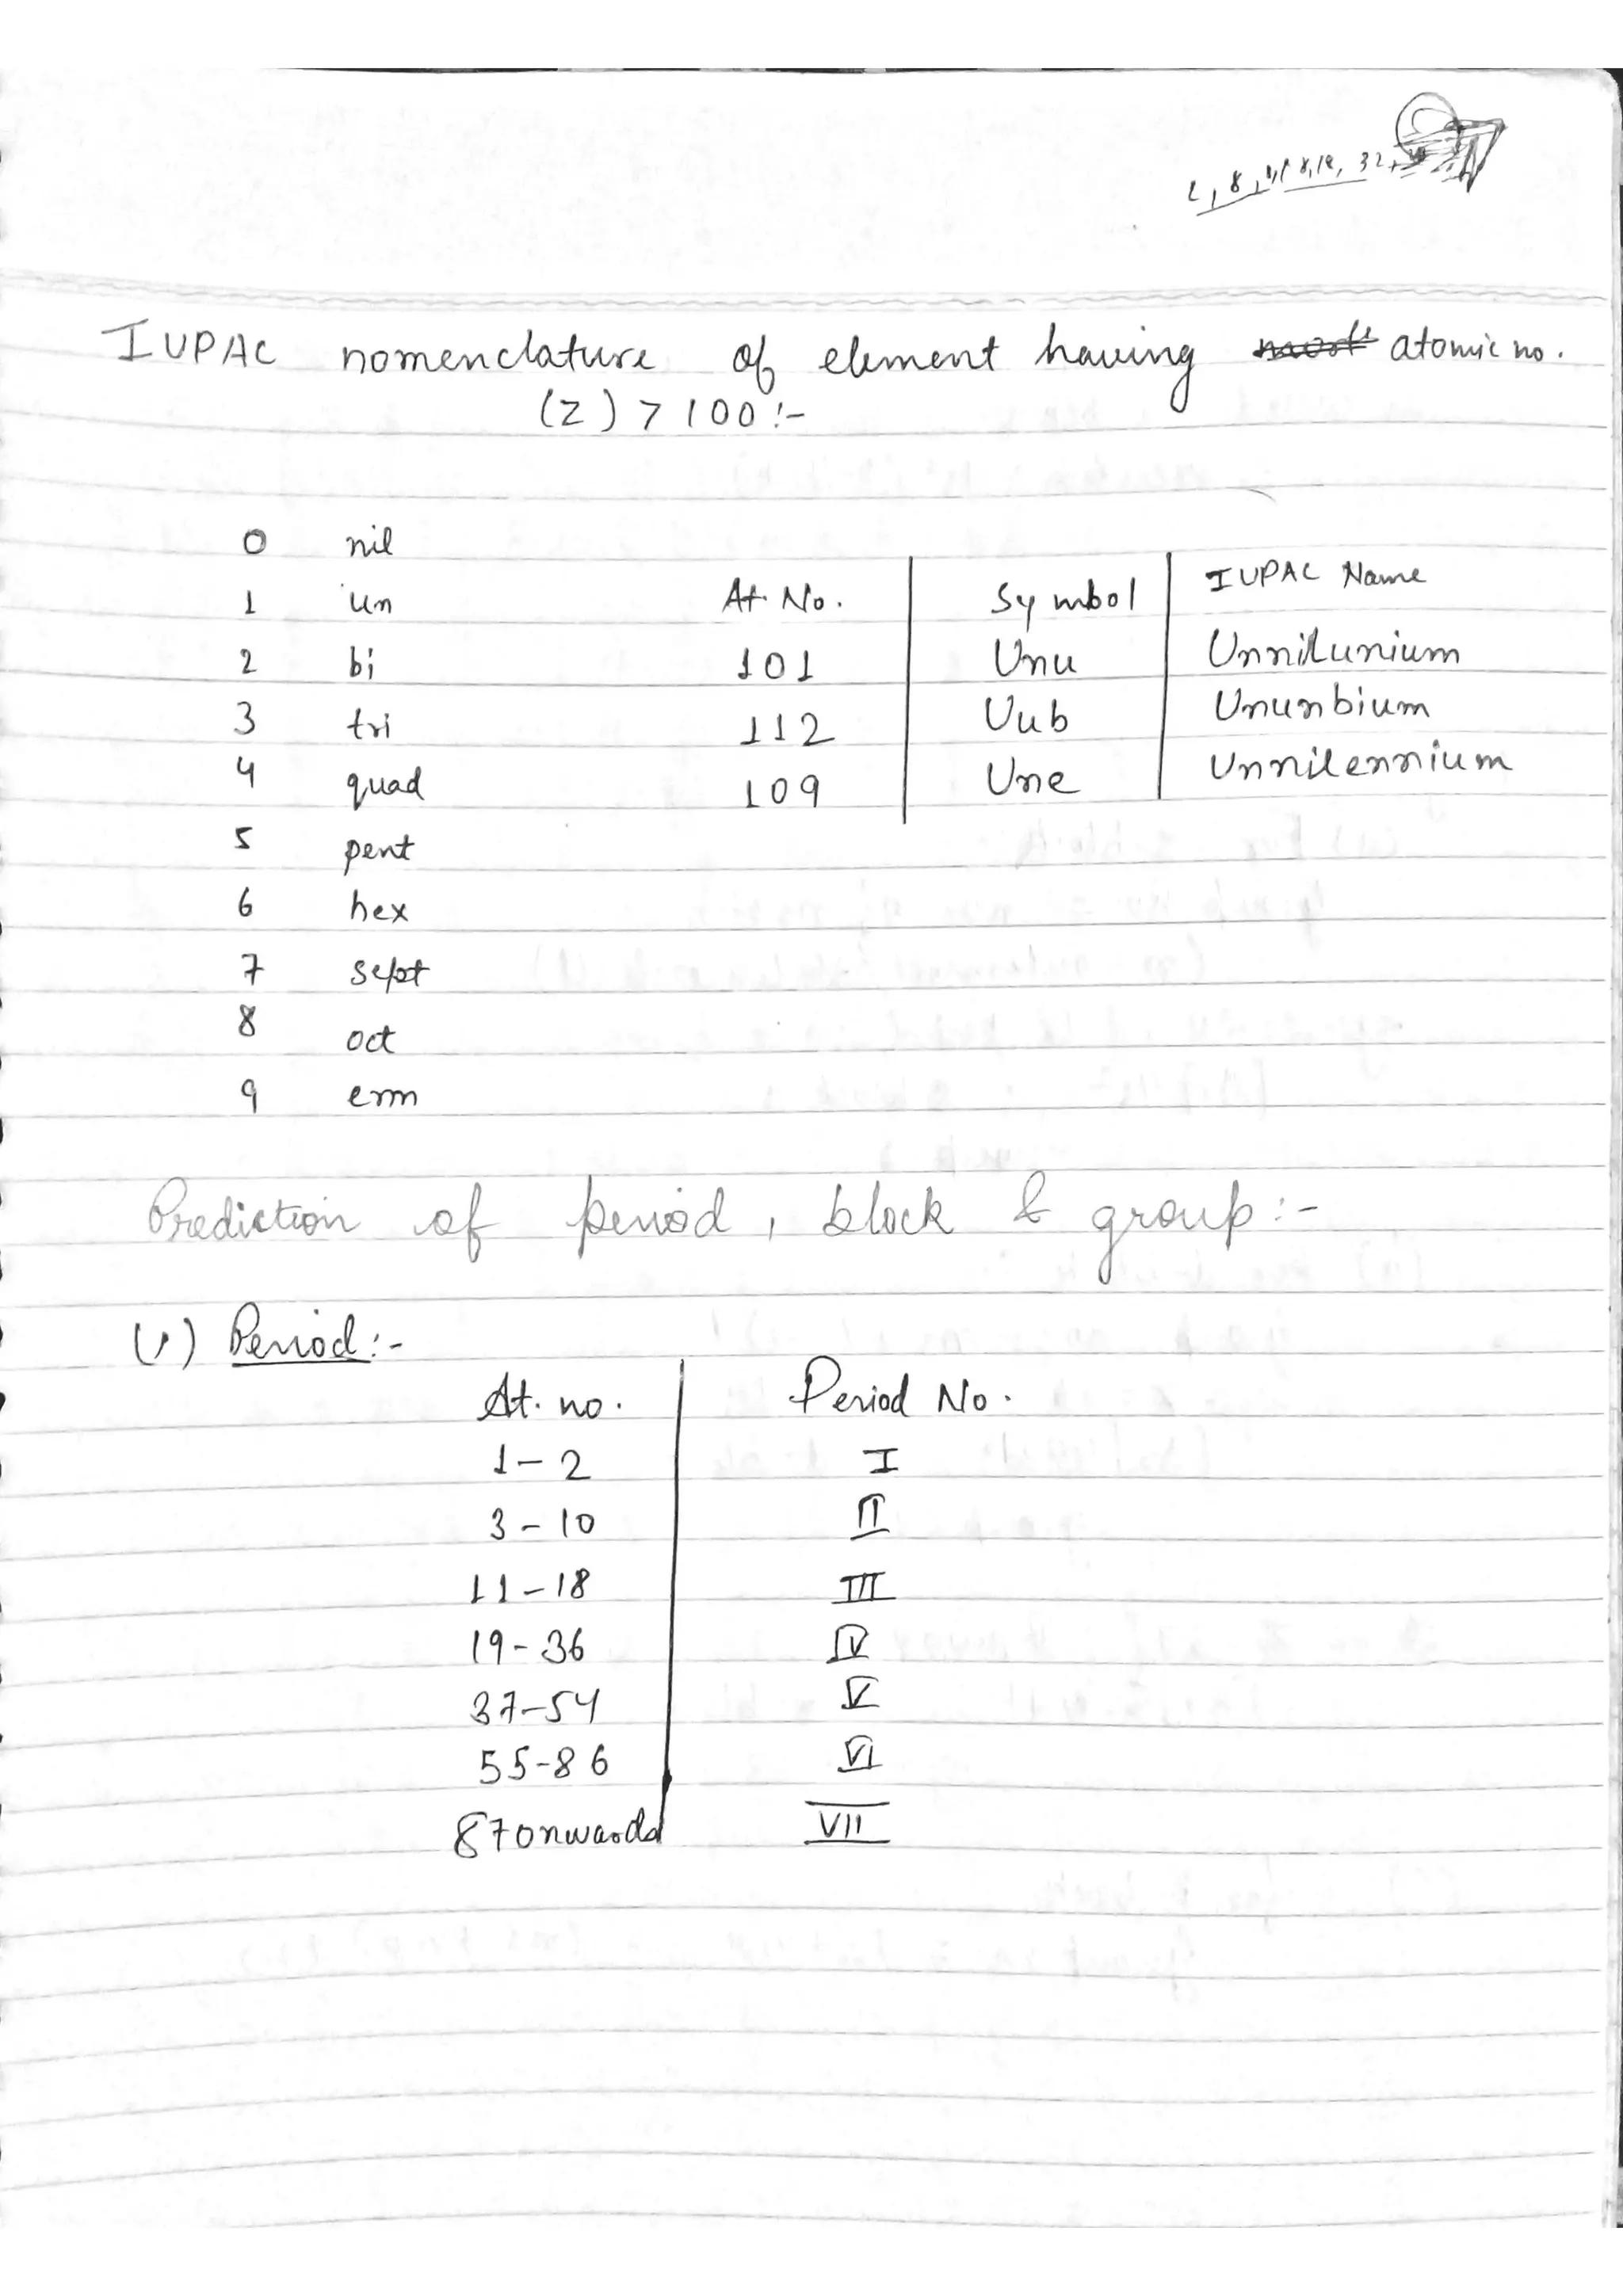 2, 8, 8, 18, 18, 32,
IUPAC nomenclature of element having atomic no.
(Z) > 100 :-
0 nil
1 un
2 bi
3 tri
4 quad
5 pent
6 hex
7 sept
8 oct
9 enn
At. No. Symbol IUPAC Name
101 Unu Unnilunium
112 Uub Ununbium
109 Une Unnilennium
Prediction of period, block & group :-
(1) Period :-
At. no. Period No.
1-2 I
3-10 II
11-18 III
19-36 IV
37-54 V
55-86 VI
87 onwards VII